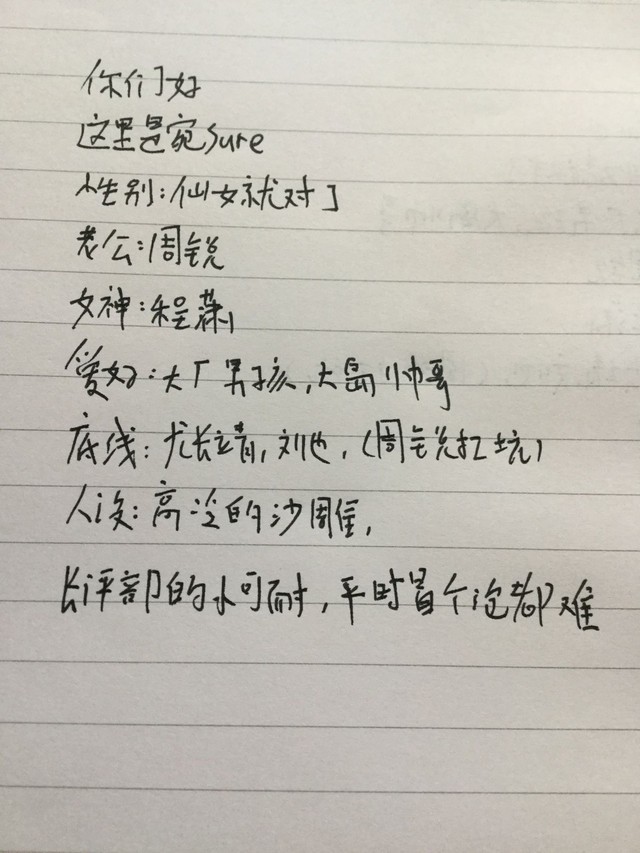 你们好
这里是宛Sure
性别：仙女就对了
老公：周锐
女神：程潇
爱好：大厂男孩，大岛帅哥
底线：尤长靖，刘也，（周锐扛坑）
人设：高冷的沙雕，
长评部的小可耐，平时冒个泡都难